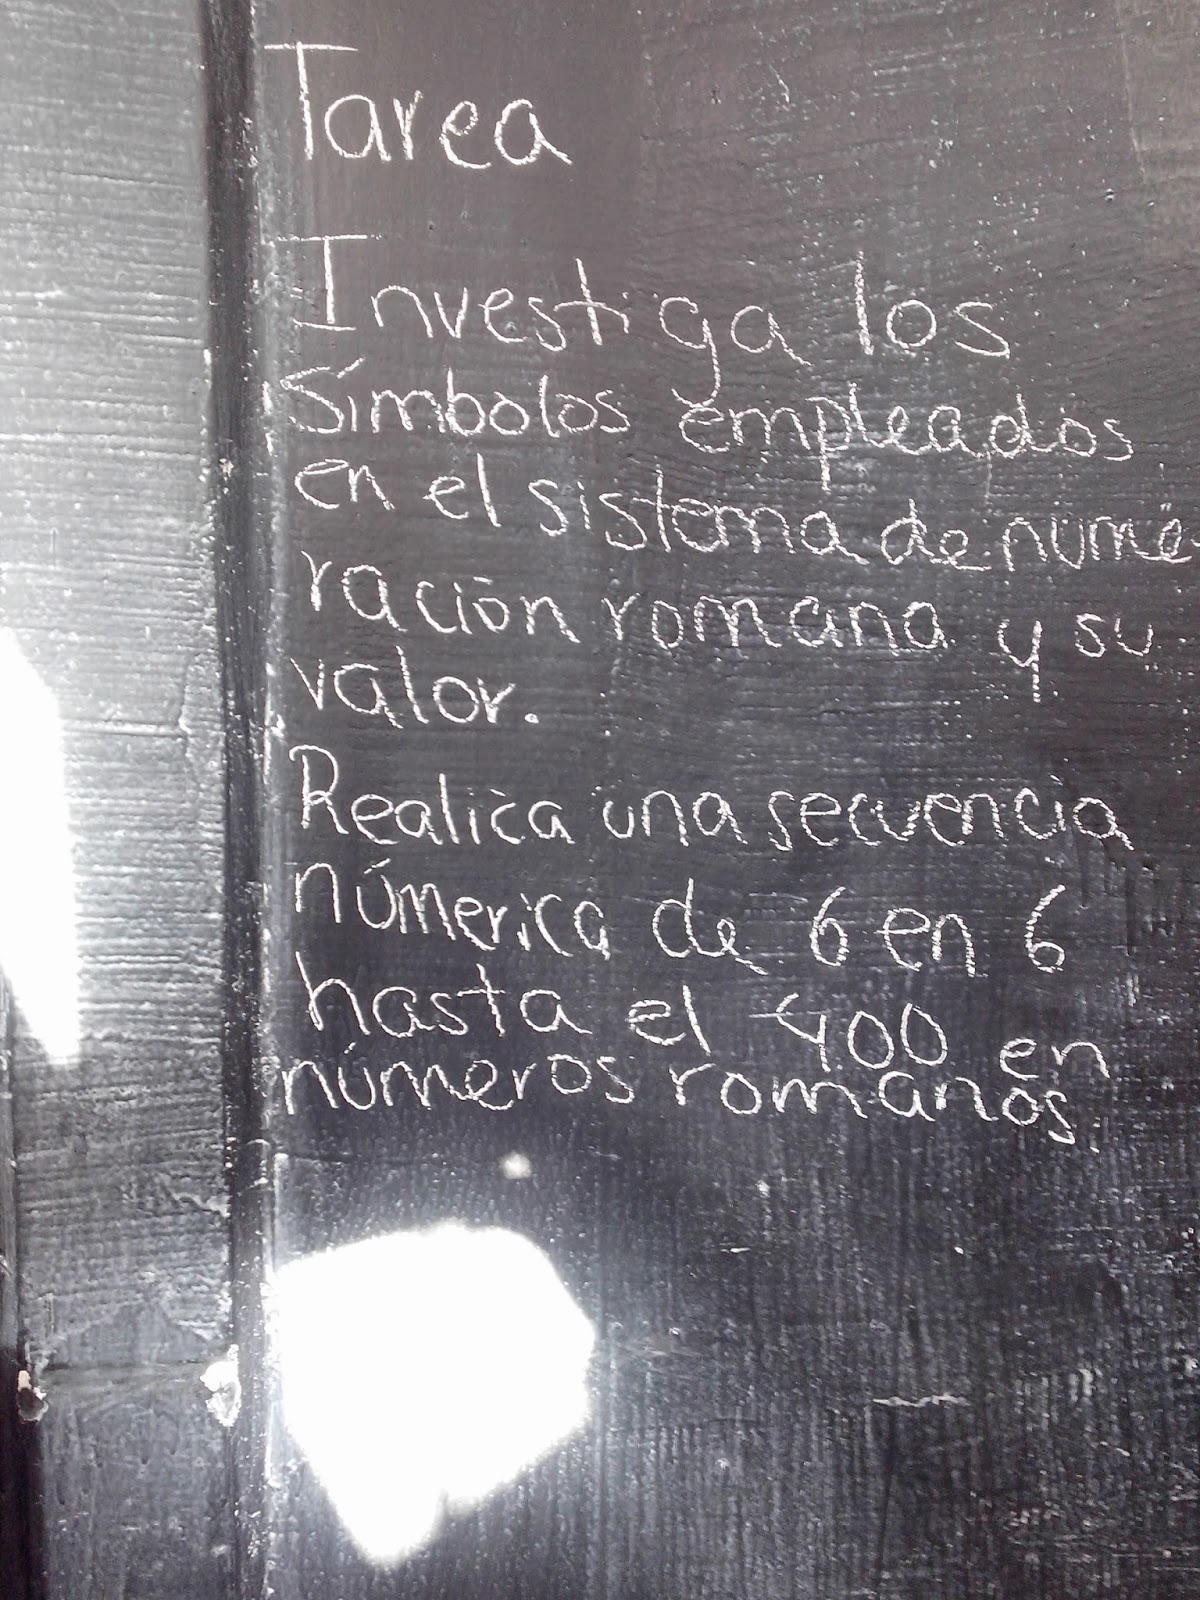 Tarea
Investiga los
Símbolos empleados
en el sistema de nume
ración romana y su
valor.
Realica una secuencia
númerica de 6 en 6
hasta el 400 en
números romanos